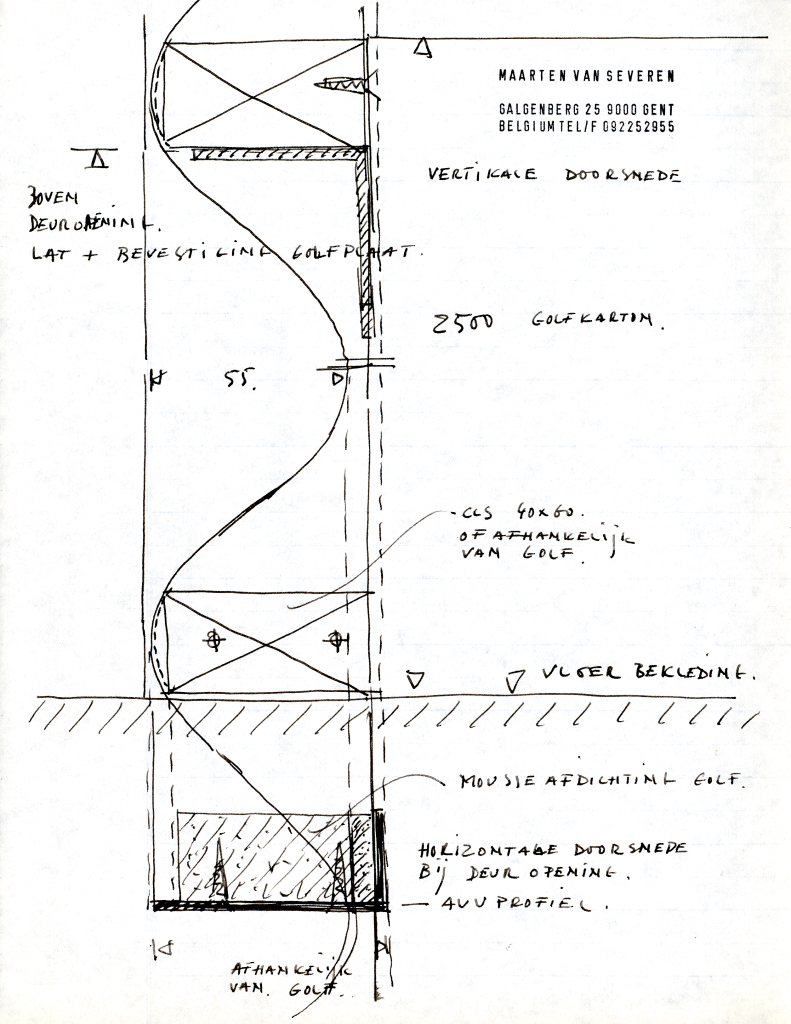 MAARTEN VAN SEVEREN
GALGENBERG 25 9000 GENT
BELGIUM TEL/F 092252955
VERTIKALE DOORSNEDE
BOVEN
DEUROPENING.
LAT + BEVESTIGING GOLFPLAAT.
2500 GOLFKARTON.
55.
CLS 40x60.
OF AFHANKELIJK
VAN GOLF.
VLOER BEKLEDING.
MOUSSE AFDICHTING GOLF.
HORIZONTALE DOORSNEDE
BIJ DEUROPENING.
PROFIEL.
AFHANKELIJK
VAN. GOLF.